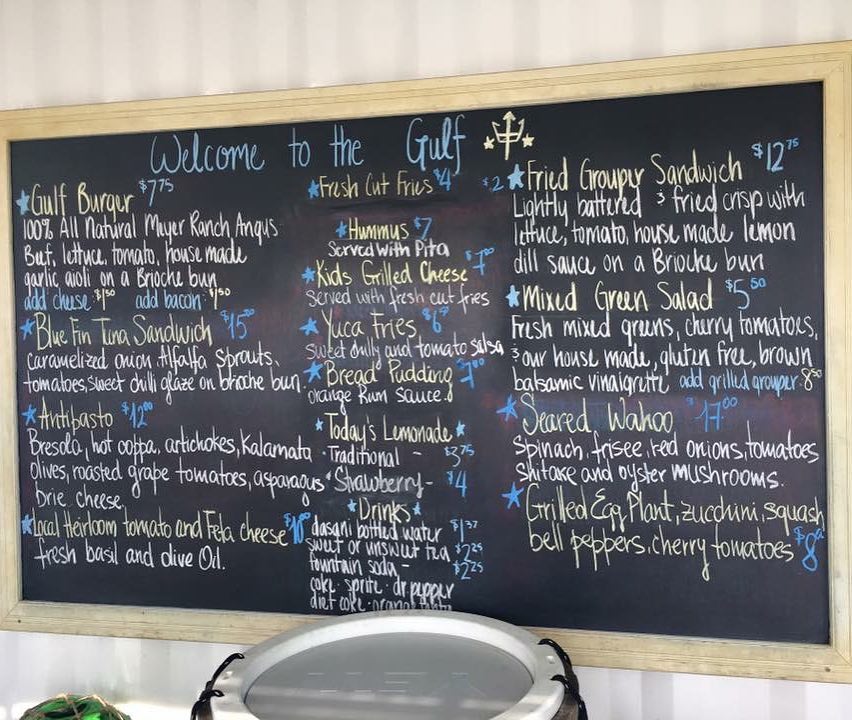 Welcome to the Gulf
Gulf Burger $7.75
100% All Natural Meyer Ranch Angus
Beef, lettuce, tomato, house made
garlic aioli on a Brioche bun
add cheese $1.50 add bacon $1.50
Blue Fin Tuna Sandwich $15
caramelized onion, Alfalfa Sprouts,
tomatoes, sweet chili glaze on brioche bun.
Antipasto $12.00
Bresola, hot coppa, artichokes, Kalamata
olives, roasted grape tomatoes, asparagus
brie cheese,
Local Heirloom tomato and Feta cheese
fresh basil and olive Oil.
Fresh Cut Fries $4
Hummus $7
Served With Pita
Kids Grilled Cheese $7.00
served with fresh cut fries
Yuca Fries
Sweet chilly and tomato salsa
Bread Pudding $7.00
orange Rum Sauce
Today's Lemonade
Traditional - $3.75
Strawberry - $4
Drinks
dasani bottled water $1.37
sweet or unsweet tea $2.25
fountain soda - $2.25
coke · sprite · dr. pepper
diet coke · orange
$2
Fried Grouper Sandwich $12.75
Lightly battered & fried crisp with
lettuce, tomato, house made lemon
dill sauce on a Brioche bun
Mixed Green Salad $5.50
Fresh mixed greens, cherry tomatoes,
& our house made, gluten free, brown
balsamic vinaigrette add grilled grouper 8.50
Seared Wahoo $17.00
Spinach, frisee, red onions, tomatoes
Shitake and oyster mushrooms.
Grilled Egg Plant, zucchini, squash
bell peppers, cherry tomatoes